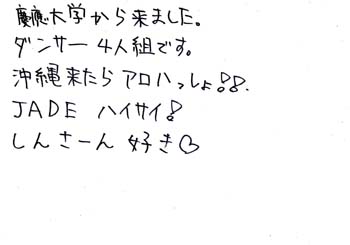 慶應大学から来ました。
ダンサー4人組です。
沖縄来たらアロハっしょ!!
JADE ハイサイ!
しんさーん 好き♡